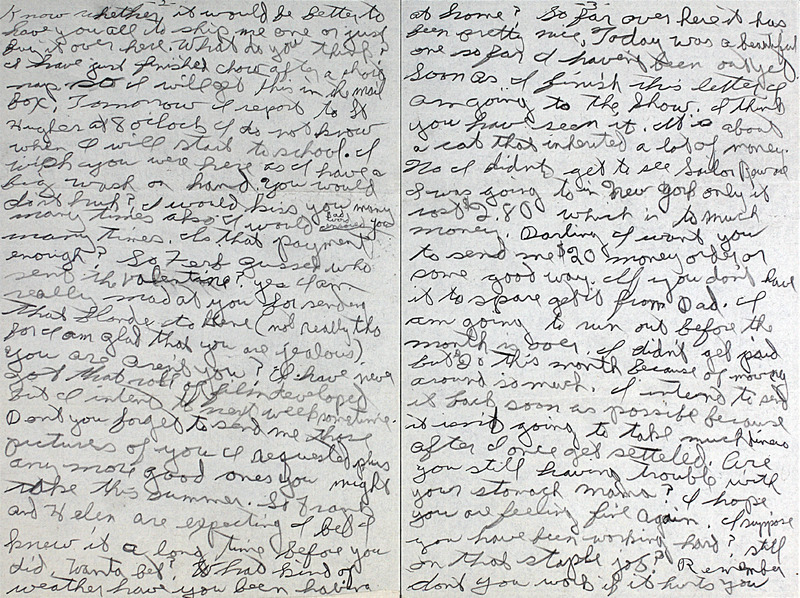 -2-
Know whether it would be better to
have you all to ship me one or just
buy it over here. What do you think?
I have just finished chow after a short
nap so I will get this in the mail
box. Tomorrow I report to St
Hughes at 8 oclock I do not know
when I will start to school. I
wish you were here as I have a
big wash on hand. You would
do it huh? I would kiss you many
many times also I would you
many times. Is that payment
enough? So Ferb guessed who
sent the valentine? yes I am
really mad at you for sending
that blonde to Gene (not really tho
for I am glad that you are jealous)
you are aren't you? I have never
got that roll of film developed
but I intend to next week sometime.
Dont you forget to send me those
pictures of you I requested plus
any more good ones you might
take this summer. So Frank
and Helen are expecting I bet I
knew it a long time before you
did. Wanta bet? What kind of
weather have you been having
-3-
at home? So far over here it has
been pretty nice. Today was a beautiful
one so far I haven't been out yet.
Soon as I finish this letter I
am going to the show. I think
you have seen it. It is about
a cat that inherited a lot of money.
No I didnt get to see Sailor Beware
I was going to in New York only it
cost $2.80 which is to much
money. Darling I want you
to send me $20 money order or
some good way. If you don't have
it to spare get it from Dad. I
am going to run out before the
month is over. I didn't get paid
but $20 this month because of moving
around so much. I intend to send
it back soon as possible because
it isn't going to take much
after I once get setteled. Are
you still having trouble with
your stomach mama? I hope
you are feeling fine again. I suppose
you have been working hard? still
on that staple job? Remember
dont you work if it hurts you